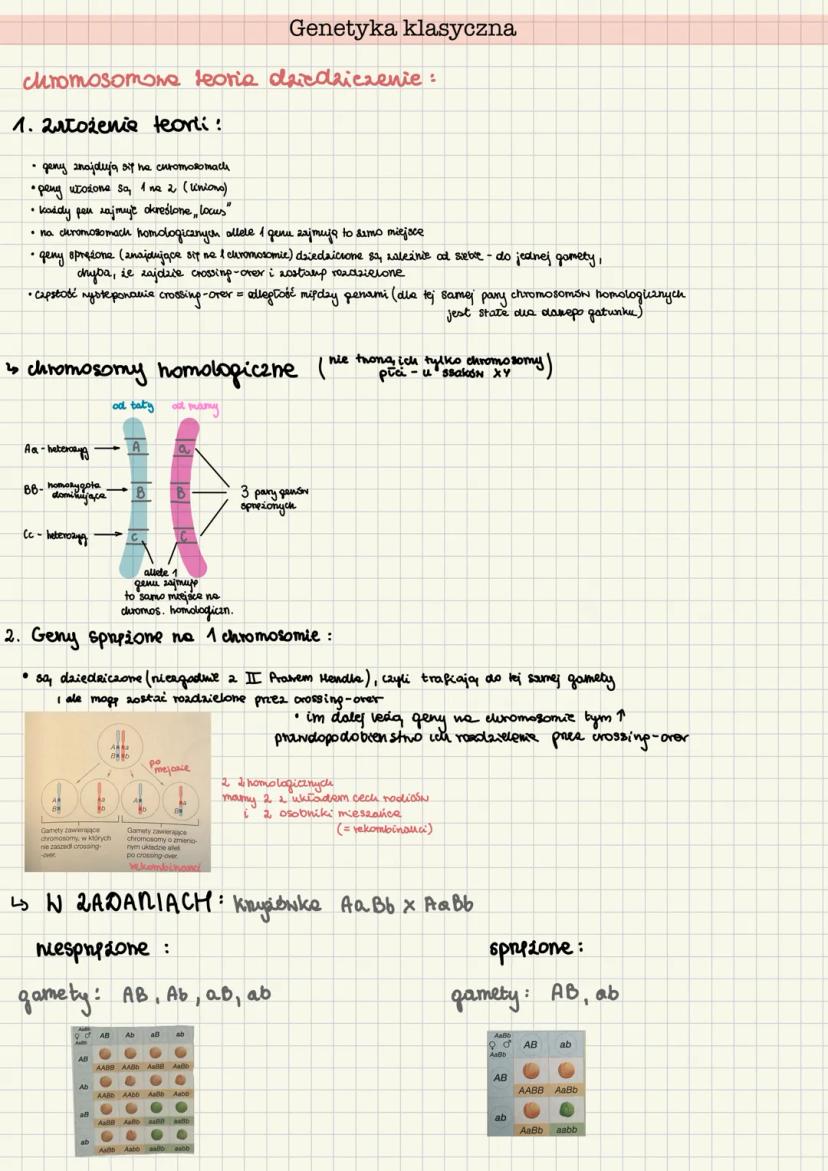 Genetyka klasyczna
chromosomowa teoria dziedziczenie :
1. założenia teorii :
• geny znajdują się na chromosomach
• geny ułożone są 1 na 2 (liniowo)
• każdy gen zajmuje określone „locus"
• na chromosomach homologicznych allele 1 genu zajmują to samo miejsce
• geny sprzężone (znajdujące się na 1 chromosomie) dziedziczone są zależnie od siebie - do jednej gamety,
chyba, że zajdzie crossing-over i zostaną rozdzielone
• częstość występowania crossing-over = odległość między genami (dla tej samej pary chromosomów homologicznych
jest stała dla danego gatunku)
↳ chromosomy homologiczne (nie tworzą ich tylko chromosomy
płci - u ssaków XY)
od taty od mamy
Aa - heterozyg A a
BB- homozygota
dominująca B B 3 pary genów
sprzężonych
Cc - heterozyg c C
allele 1
genu zajmują
to samo miejsce na
chromos. homologiczn.
2. Geny sprzężone na 1 chromosomie :
• są dziedziczone (niezgodnie z II Prawem Mendla), czyli trafiają do tej samej gamety
, ale mogą zostać rozdzielone przez crossing-over
• im dalej leżą geny na chromosomie tym ↑
prawdopodobieństwo ich rozdzielenia przez crossing-over
A a
B b
po
mejozie
A a A a
B b b B
Gamety zawierające
chromosomy, w których
nie zaszedł crossing-
-over.
Gamety zawierające
chromosomy o zmienio-
nym układzie alleli
po crossing-over.
rekombinanci
z 2 homologicznych
mamy 2 z układem cech rodziców
i 2 osobniki mieszańce
(= rekombinanci)
↳ W ZADANIACH : krzyżówka AaBb x AaBb
niesprzężone :
gamety: AB, Ab, aB, ab
AaBb
♀ ♂ AB Ab aB ab
AaBb
AB
AABB AABb AaBB AaBb
Ab
AABb AAbb AaBb Aabb
aB
AaBB AaBb aaBB aaBb
ab
AaBb Aabb aaBb aabb
sprzężone :
gamety: AB, ab
AaBb
♀ ♂ AB ab
AaBb
AB
AABB AaBb
ab
AaBb aabb